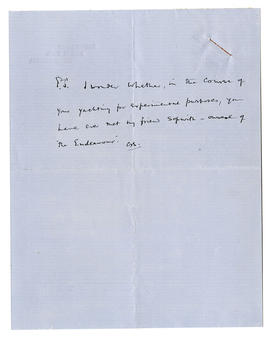 P.S. I wonder whether, in the course of
your yachting for experimental purposes, you
have ever met my friend Sopwith – owner of
'the Endeavour'.